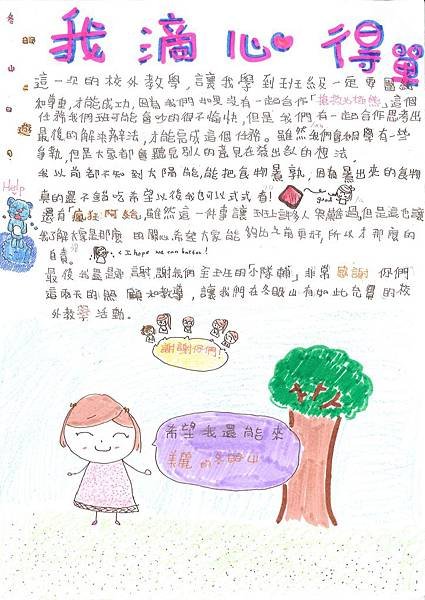 我滴心得單
這一次的校外教學,讓我學到班級一定要團結
和尊重,才能成功,因為我們如果沒有一起合作「搶救北極熊」這個
任務我們班可能會吵的很不愉快,但是我們有一起合作思考出
最後的解決辦法,才能完成這個任務。雖然我們會有一些
爭執,但是大家都會聽見別人的意見在發出的想法
我以前都不知到太陽能,能把食物蒸熟,因為蒸出來的食物
真的還不錯吃希望以後我也可以式式看!
good
Help
還有「瘋狂阿給」,雖然這一件事讓班上許多人難過,但是這也讓
我了解大家是那麼的關心希望大家能夠比之前更好,所以才那麼的
自責。
I hope we can better!
最後我要謝謝我們全班的「小隊輔」非常感謝你們
這兩天的照顧和教導,讓我們在冬山有如此充實的校
外教學活動。
謝謝你們!
希望我還能來
美麗的冬山